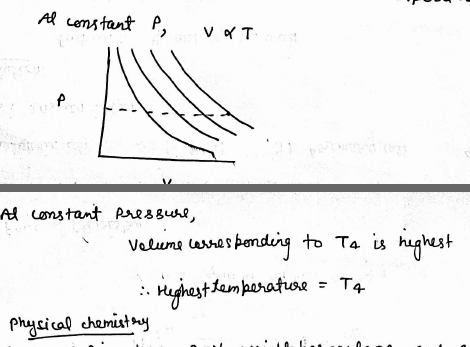 At constant P, V ∝ T
P
V
At constant pressure,
Volume corresponding to T4 is highest
∴ Highest temperature = T4
Physical chemistry